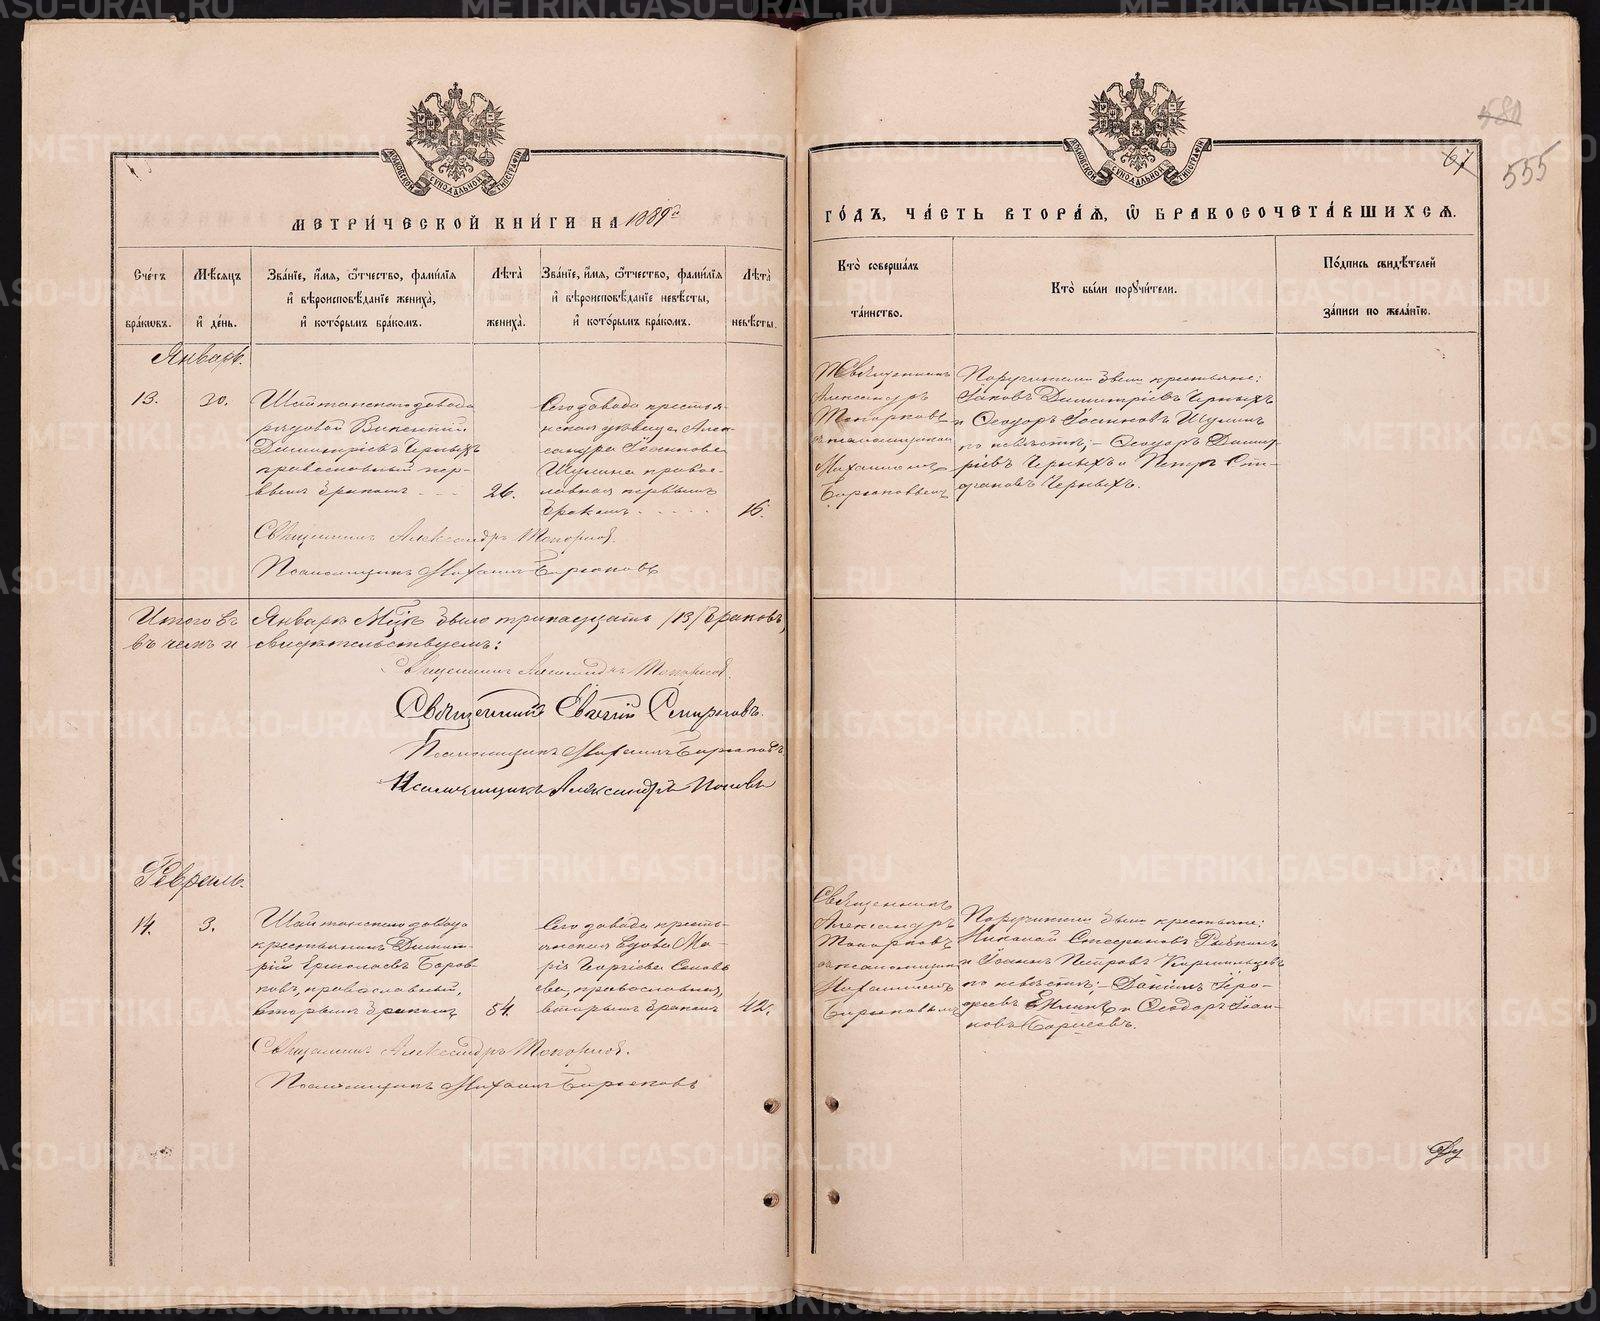 МОСКОВСКОЙ СѴНОДАЛЬНОЙ ТИПОГРАФІИ
МЕТРИ́ЧЕСКОЙ КНИ́ГИ НА 1889й
Сче́тъ бра́ковъ.
Мѣ́сяцъ и҆ де́нь.
Зва́нїе, и҆́мя, ѻ҆́тчество, фами́лїя и҆ вѣроисповѣ́данїе жениха̀, и҆ кото́рымъ бра́комъ.
Лѣ́та жениха̀.
Зва́нїе, и҆́мя, ѻ҆́тчество, фами́лїя и҆ вѣроисповѣ́данїе невѣ́сты, и҆ кото́рымъ бра́комъ.
Лѣ́та невѣ́сты.
Январь.
13.
30.
Шайтанскаго завода
рядовой Викентій
Димитріевъ Черныхъ
православный пер-
вымъ бракомъ
26.
Сего завода крестья-
нская дѣвица Але-
ксандра Іоаннова
Шулина правос-
лавная первымъ
бракомъ
16.
Священникъ Александръ Топорковъ.
Псаломщикъ Михаилъ Бирюковъ
Итого въ Январѣ М҃цѣ было тринадцать /13/ браковъ,
въ чемъ и свидѣтельствуемъ:
Священникъ Александръ Топорковъ.
Священникъ Евгеній Смирновъ.
Псаломщикъ Михаилъ Бирюковъ
Псаломщикъ Александръ Поповъ
Февраль.
14.
3.
Шайтанскаго завода
крестьянинъ Димит-
рій Ермолаевъ Боров-
ковъ, православный,
вторымъ бракомъ
54.
Сего завода кресть-
янская вдова Ма-
рія Георгіева Соловь
ева, православная,
вторымъ бракомъ
42.
Священникъ Александръ Топорковъ.
Псаломщикъ Михаилъ Бирюковъ
480
67
555
МОСКОВСКОЙ СѴНОДАЛЬНОЙ ТИПОГРАФІИ
ГО́ДЪ, ЧА́СТЬ ВТОРА́Я, Ѡ҆ БРАКОСОЧЕТА́ВШИХСЯ.
Кто̀ соверша́лъ та́инство.
Кто̀ бы́ли порꙋчи́тели.
По́дпись свидѣ́телей за́писи по жела́нїю.
Священникъ
Александръ
Топорковъ
съ псаломщикомъ
Михаиломъ
Бирюковымъ
Поручители были крестьяне:
Іаковъ Димитріевъ Черныхъ
и Ѳеодоръ Іоанновъ Шулинъ
по невѣстѣ; – Ѳеодоръ Димит-
ріевъ Черныхъ и Петръ Сте-
фановъ Черныхъ.
Священникъ
Александръ
Топорковъ
съ псаломщикомъ
Михаиломъ
Бирюковымъ
Поручители были крестьяне:
Николай Стефановъ
и Іоаннъ Петровъ
по невѣстѣ; – Даніилъ
и Ѳеодоръ Іоан-
новъ Борисовъ.
METRIKI.GASO-URAL.RU